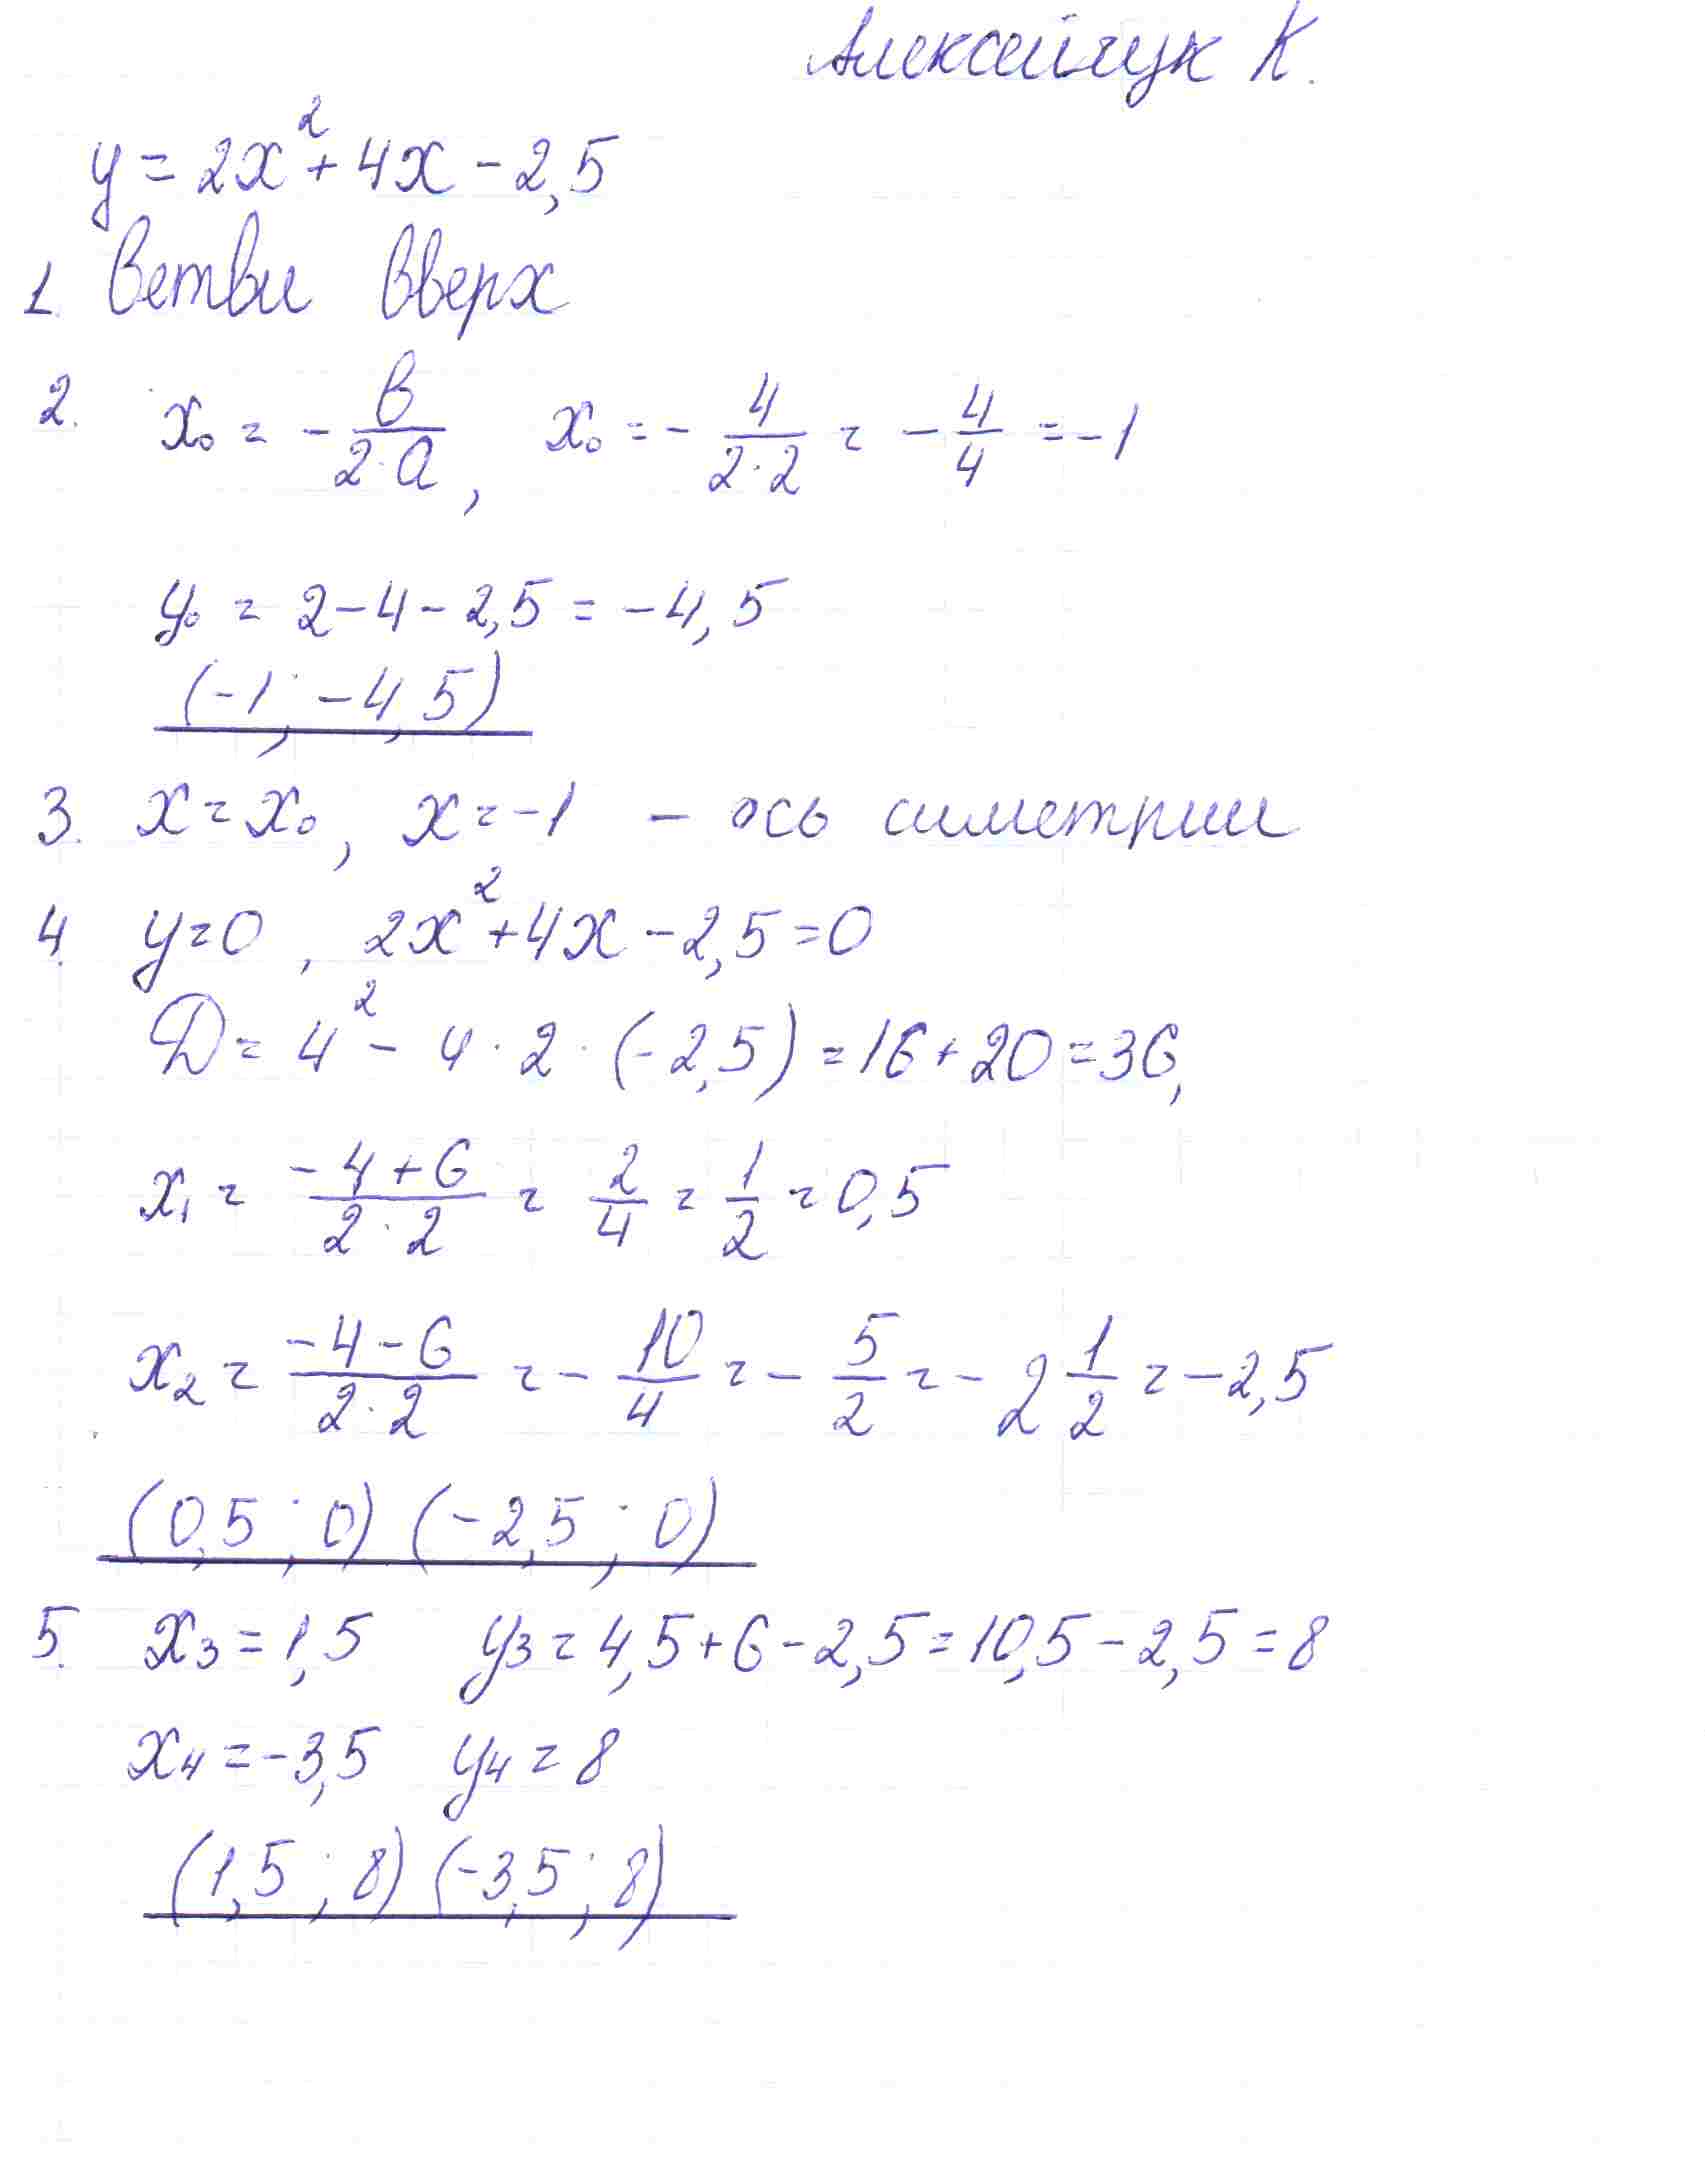 Алексейчук К.
y = 2x² + 4x - 2,5
1. Ветви вверх
2. x₀ = - в/(2·a), x₀ = - 4/(2·2) = - 4/4 = -1
y₀ = 2 - 4 - 2,5 = -4,5
(-1; -4,5)
3. x = x₀, x = -1 - ось симетрии
4. y = 0, 2x² + 4x - 2,5 = 0
Д = 4² - 4 · 2 · (-2,5) = 16 + 20 = 36,
x₁ = (-4 + 6)/(2·2) = 2/4 = 1/2 = 0,5
x₂ = (-4 - 6)/(2·2) = - 10/4 = - 5/2 = - 2 1/2 = -2,5
(0,5; 0) (-2,5; 0)
5. x₃ = 1,5 y₃ = 4,5 + 6 - 2,5 = 10,5 - 2,5 = 8
x₄ = -3,5 y₄ = 8
(1,5; 8) (-3,5; 8)